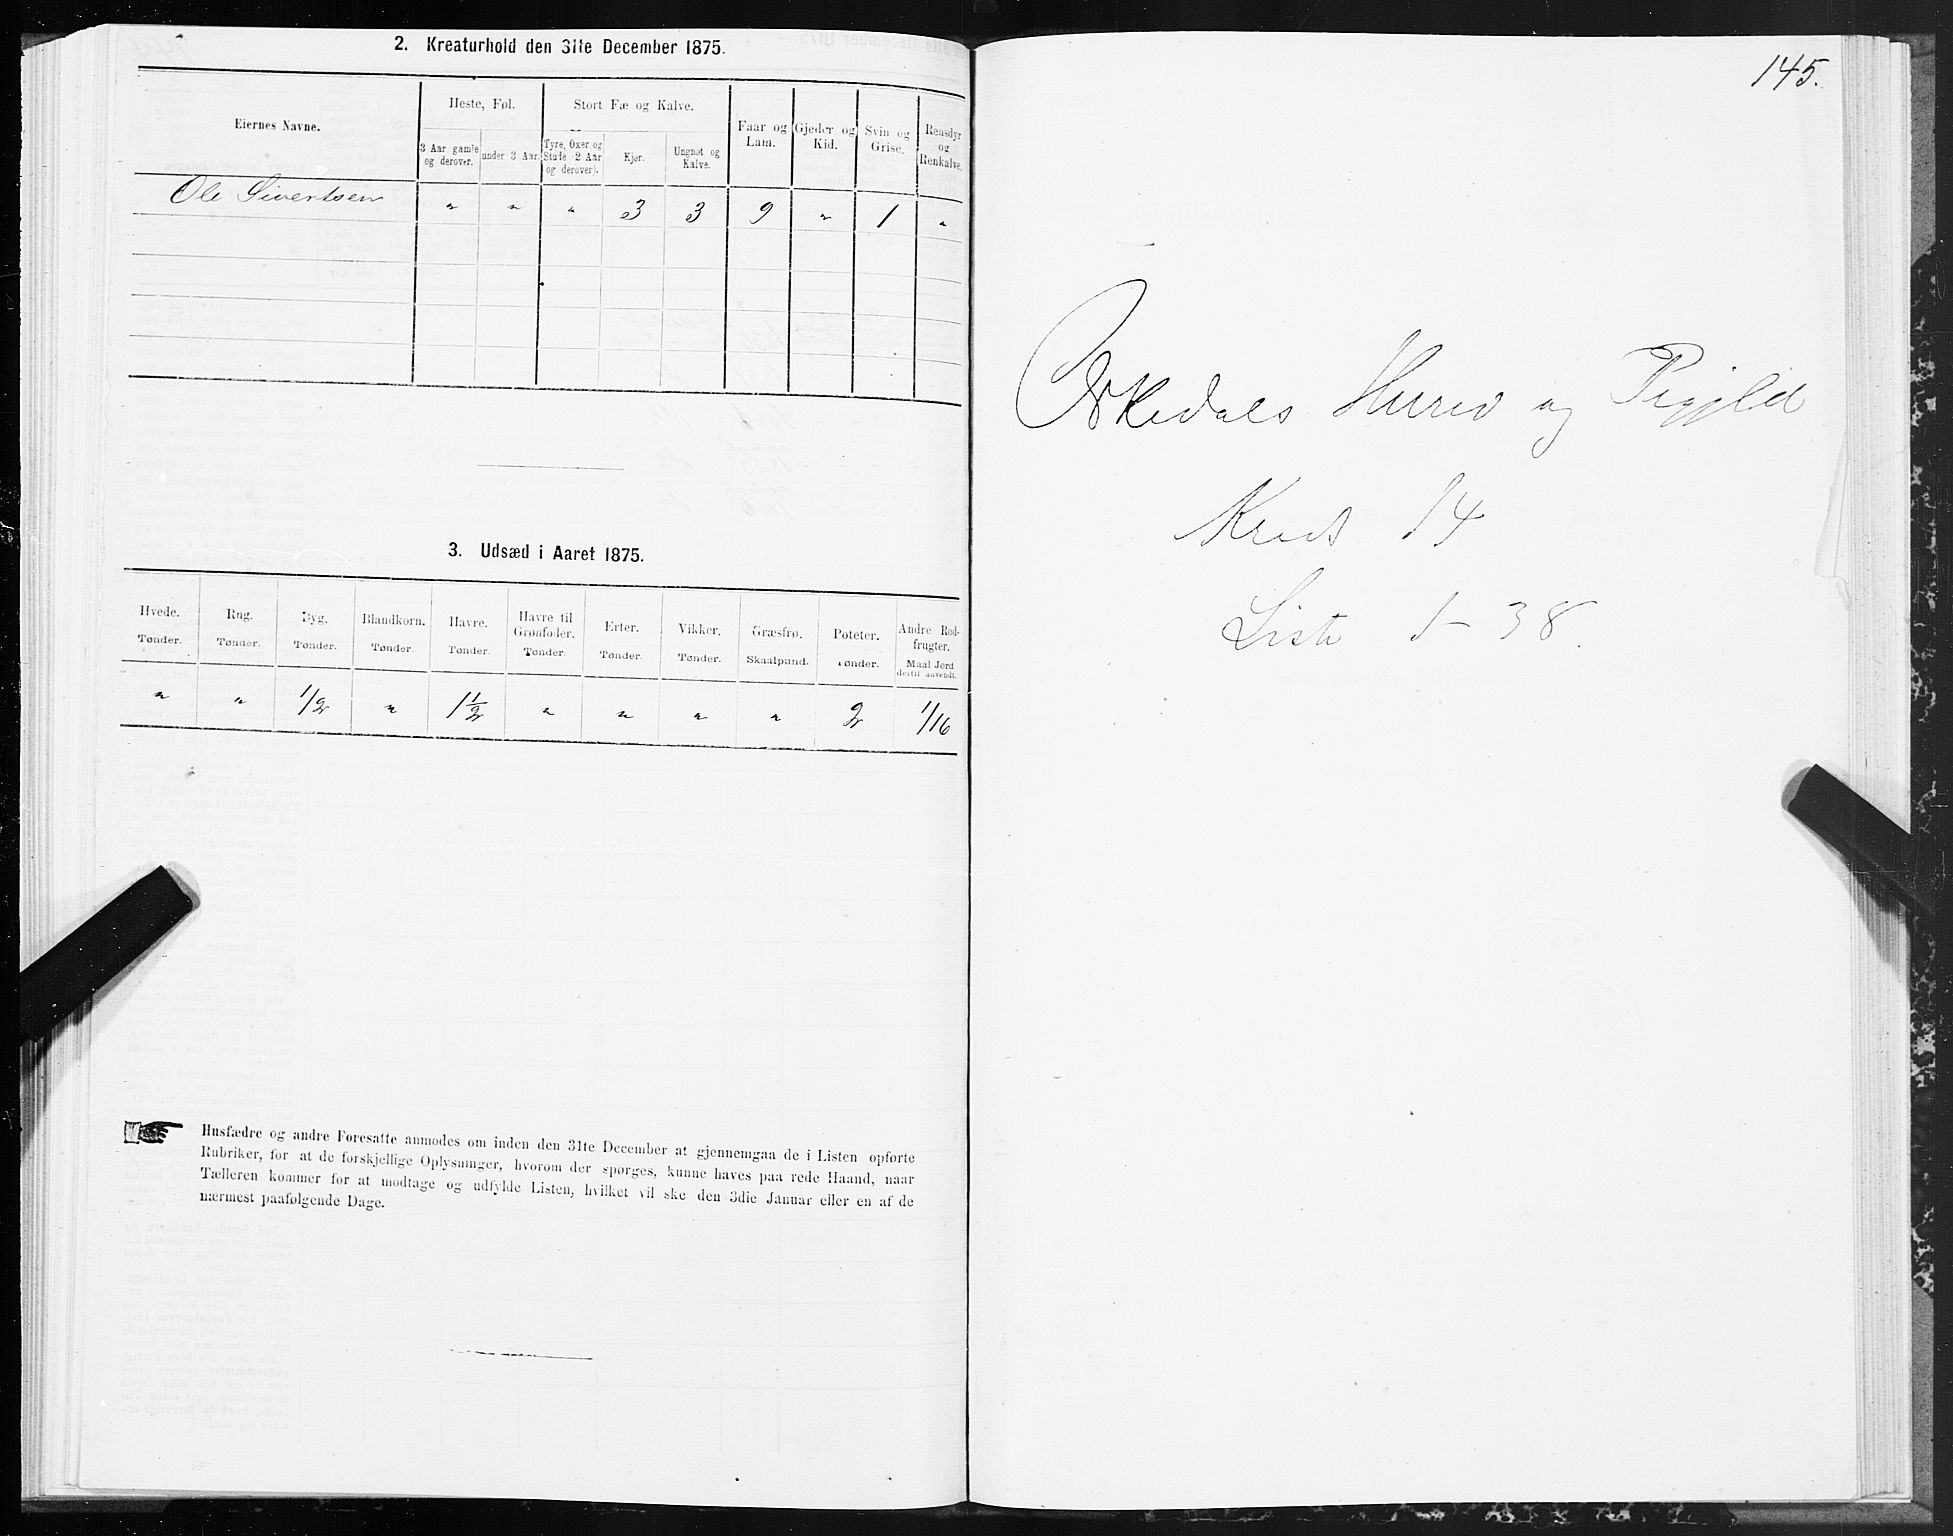 2. Kreaturhold den 31te December 1875.
Eiernes Navne.
Heste, Føl.
Stort Fæ og Kalve.
3 Aar gamle og derover.
under 3 Aar.
Tyre, Oxer og Stude 2 Aar og derover).
Kjør.
Ungnøt og Kalve.
Faar og Lam.
Gjeder og Kid.
Svin og Grise.
Rensdyr og Renkalve.
Ole Sivertsen " " " 3 3 9 " 1 "
3. Udsæd i Aaret 1875.
Hvede. Rug. Byg. Blandkorn. Havre. Havre til Grønfoder. Erter. Vikker. Græsfrø. Poteter. Andre Rodfrugter.
Tønder. Tønder. Tønder. Tønder. Tønder. Tønder. Tønder. Tønder. Skaalpund. Tønder. Maal Jord dertil anvendt.
" " 1/2 " 1 1/2 " " " " 2 1/16
Husfædre og andre Foresatte anmodes om inden den 31te December at gjennemgaa de i Listen opførte
Rubriker, for at de forskjellige Oplysninger, hvorom der spørges, kunne haves paa rede Haand, naar
Tælleren kommer for at modtage og udfylde Listen, hvilket vil ske den 3die Januar eller en af de
nærmest paafølgende Dage.
145.
Orkedals Hured og Pgjld
Kreds 14
Liste 1-38.